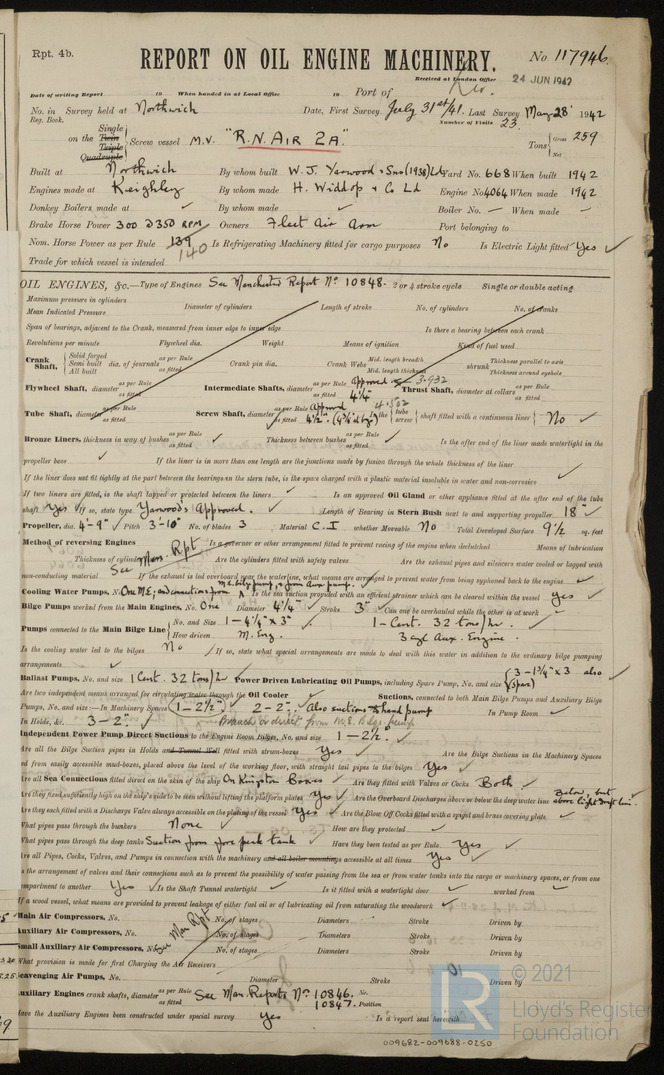 Rpt. 4b.
REPORT ON OIL ENGINE MACHINERY.
No 117946.
Received at London Office 24 JUN 1942
Date of writing Report 19 When handed in at Local Office 19 Port of
No. in Survey held at Northwich Date, First Survey July 31st/41. Last Survey May 28 1942
Reg. Book. Number of Visits 23.
Single
on the Twin Screw vessel M.V. "R.N. AIR 2A." Tons Gross 259
Triple
Quadruple Net
Built at Northwich By whom built W. J. Yarwood & Sons (1938) Ltd Yard No. 668 When built 1942
Engines made at Keighley By whom made H. Widdop & Co Ld Engine No 4064 When made 1942
Donkey Boilers made at ✓ By whom made ✓ Boiler No. — When made —
Brake Horse Power 300 @ 350 RPM Owners Fleet Air Arm Port belonging to
Nom. Horse Power as per Rule 139 140 Is Refrigerating Machinery fitted for cargo purposes No Is Electric Light fitted Yes ✓
Trade for which vessel is intended
OIL ENGINES, &c.—Type of Engines See Manchester Report No 10848. 2 or 4 stroke cycle Single or double acting
Maximum pressure in cylinders Diameter of cylinders Length of stroke No. of cylinders No. of cranks
Mean Indicated Pressure
Span of bearings, adjacent to the Crank, measured from inner edge to inner edge Is there a bearing between each crank
Revolutions per minute Flywheel dia. Weight Means of ignition Kind of fuel used
Crank Shaft, Solid forged Semi built All built dia. of journals as per Rule as fitted Crank pin dia. Crank Webs Mid. length breadth Mid. length thickness shrunk Thickness parallel to axis Thickness around eyehole
Flywheel Shaft, diameter as per Rule as fitted Intermediate Shafts, diameter as per Rule Approved 3.932 as fitted 4¼" Thrust Shaft, diameter at collars as per Rule as fitted
Tube Shaft, diameter as per Rule as fitted Screw Shaft, diameter as per Rule Approved 4.502 as fitted 4½". Is the tube screw shaft fitted with a continuous liner No ✓
Bronze Liners, thickness in way of bushes as per Rule as fitted ✓ Thickness between bushes as per Rule as fitted ✓ Is the after end of the liner made watertight in the
propeller boss ✓ If the liner is in more than one length are the junctions made by fusion through the whole thickness of the liner
If the liner does not fit tightly at the part between the bearings in the stern tube, is the space charged with a plastic material insoluble in water and non-corrosive ✓
If two liners are fitted, is the shaft lapped or protected between the liners ✓ Is an approved Oil Gland or other appliance fitted at the after end of the tube
shaft Yes ✓ If so, state type Yarwoods Approved. ✓ Length of Bearing in Stern Bush next to and supporting propeller 18" ✓
Propeller, dia. 4'-9" Pitch 3'-10" No. of blades 3 Material C.I whether Moveable No Total Developed Surface 9½ sq. feet
Method of reversing Engines Is a governor or other arrangement fitted to prevent racing of the engine when declutched Means of lubrication
See Man. Rpt Thickness of cylinder Are the cylinders fitted with safety valves Are the exhaust pipes and silencers water cooled or lagged with
non-conducting material If the exhaust is led overboard near the waterline, what means are arranged to prevent water from being syphoned back to the engine ✓
Cooling Water Pumps, No. One M.E; and connections from M.E. Bilge pump, & from Aux pump. Is the sea suction provided with an efficient strainer which can be cleared within the vessel yes ✓
Bilge Pumps worked from the Main Engines, No. One Diameter 4¼" Stroke 3" Can one be overhauled while the other is at work ✓
Pumps connected to the Main Bilge Line No. and Size 1 - 4¼" x 3" 1-Cent. 32 tons/hr. ✓
How driven M. Eng. 3 cyl Aux. Engine.
Is the cooling water led to the bilges No ✓ If so, state what special arrangements are made to deal with this water in addition to the ordinary bilge pumping
arrangements ✓
Ballast Pumps, No. and size 1 Cent. 32 tons/hr ✓ Power Driven Lubricating Oil Pumps, including Spare Pump, No. and size 3 - 1¾" x 3 also (spare)
Are two independent means arranged for circulating water through the Oil Cooler Suctions, connected to both Main Bilge Pumps and Auxiliary Bilge
Pumps, No. and size:—In Machinery Spaces 1 - 2½" 2 - 2". Also suction to hand pump In Pump Room ✓
In Holds, &c. 3 - 2". ✓ Branch or direct from M.E. Bilge pump
Independent Power Pump Direct Suctions to the Engine Room Bilges, No. and size 1 - 2½". ✓
Are all the Bilge Suction pipes in Holds and Tunnel Well fitted with strum-boxes Yes ✓ Are the Bilge Suctions in the Machinery Spaces
ed from easily accessible mud-boxes, placed above the level of the working floor, with straight tail pipes to the bilges Yes ✓
Are all Sea Connections fitted direct on the skin of the ship On Kingston Boxes ✓ Are they fitted with Valves or Cocks Both ✓
Are they fixed sufficiently high on the ship's side to be seen without lifting the platform plates Yes ✓ Are the Overboard Discharges above or below the deep water line Below, but above light draft line.
Are they each fitted with a Discharge Valve always accessible on the plating of the vessel Yes ✓ Are the Blow Off Cocks fitted with a spigot and brass covering plate ✓
What pipes pass through the bunkers None ✓ How are they protected ✓
What pipes pass through the deep tanks Suction from fore peak tank ✓ Have they been tested as per Rule Yes ✓
Are all Pipes, Cocks, Valves, and Pumps in connection with the machinery and all boiler mountings accessible at all times Yes ✓
Is the arrangement of valves and their connections such as to prevent the possibility of water passing from the sea or from water tanks into the cargo or machinery spaces, or from one
mpartment to another Yes ✓ Is the Shaft Tunnel watertight ✓ Is it fitted with a watertight door ✓ worked from ✓
If a wood vessel, what means are provided to prevent leakage of either fuel oil or of lubricating oil from saturating the woodwork ✓
Main Air Compressors, No. No. of stages Diameters Stroke Driven by
Auxiliary Air Compressors, No. See Man Rpt No. of stages Diameters Stroke Driven by
Small Auxiliary Air Compressors, No. No. of stages Diameters Stroke Driven by
What provision is made for first Charging the Air Receivers
Scavenging Air Pumps, No. Diameter Stroke Driven by
Auxiliary Engines crank shafts, diameter as per Rule as fitted See Man. Reports No 10846. 10847. No. Position
Have the Auxiliary Engines been constructed under special survey Yes Is a report sent herewith
© 2021
Lloyd's Register
Foundation
009682-009688-0250